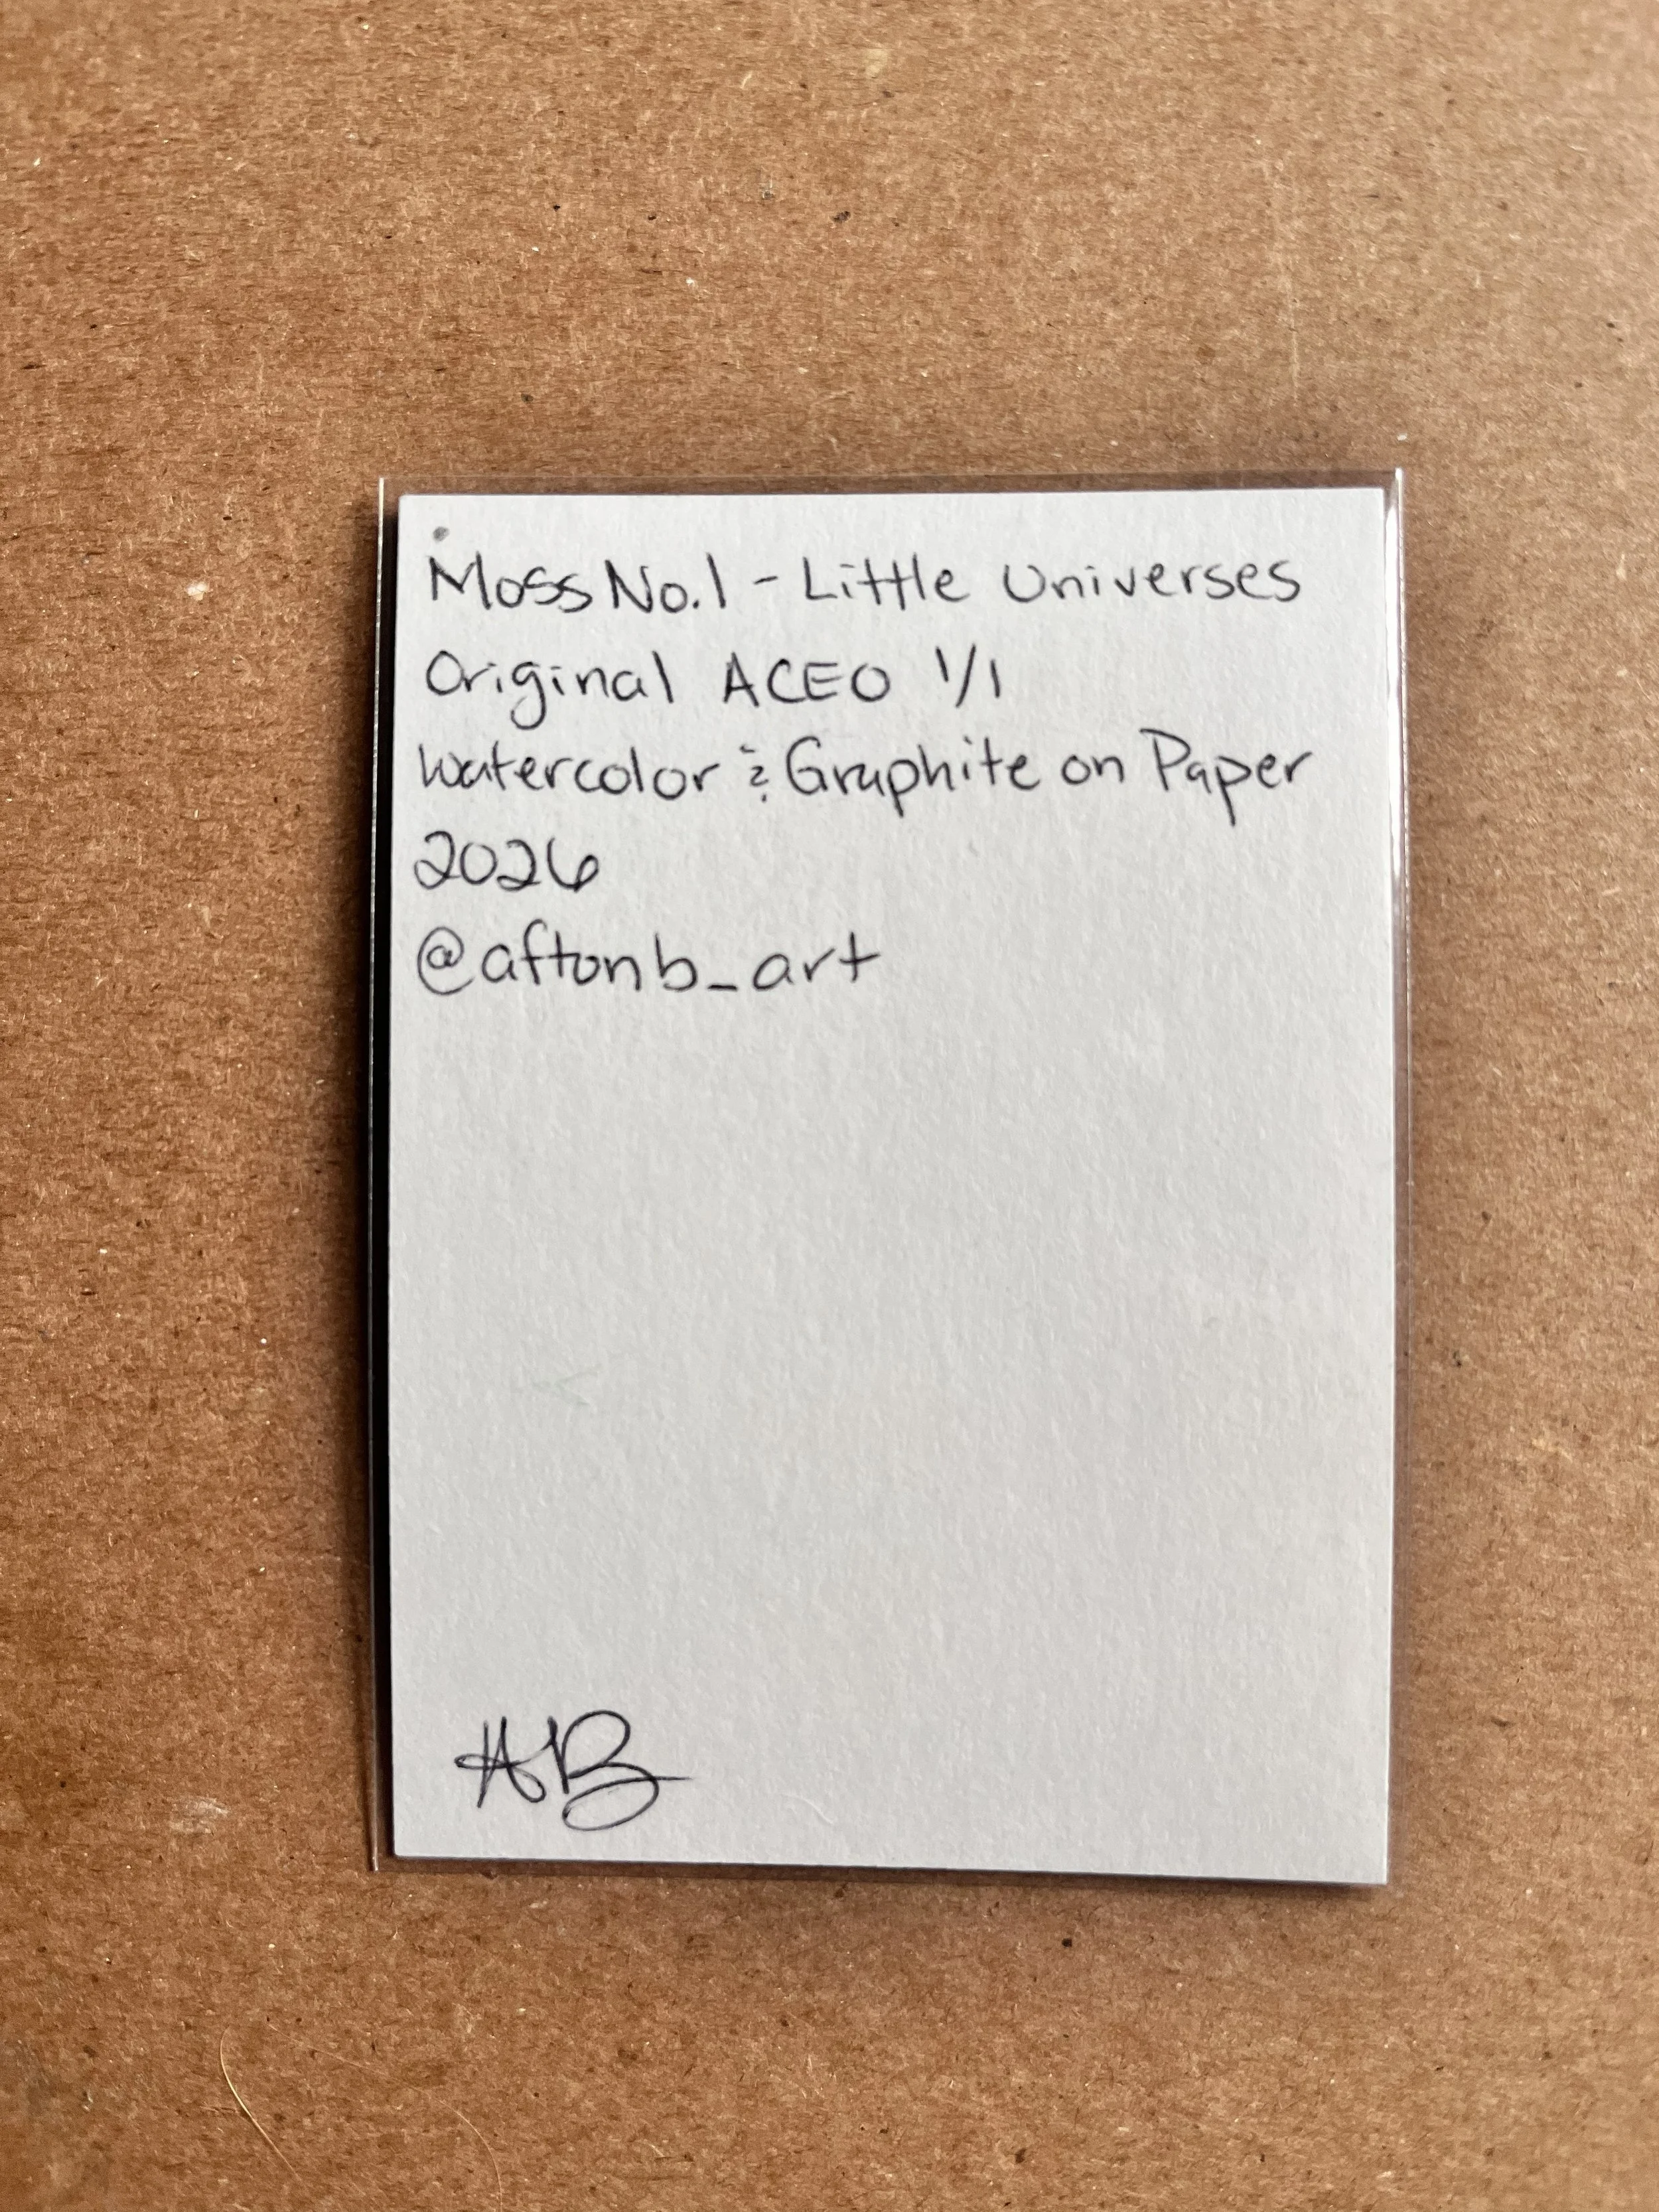 Moss No.1 - Little Universes
Original ACEO 1/1
Watercolor & Graphite on Paper
2026
@aftonb_art
AB